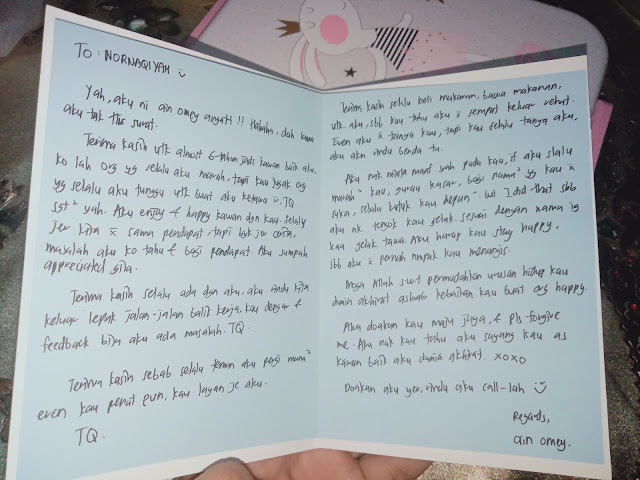 TO : NORNAQIYAH
Yah, aku ni ain omey angat!! Hahaha, dah lama
aku tak tls surat.
Terima kasih utk almost 6 tahun jadi kawan baik aku,
ko lah org yg selalu aku marah, tapi kau jugak org
yg selalu aku tunggu utk buat aku ketawa. TQ
sgt² yah. Aku enjoy & happy kawan dgn kau. Selalu
jer kita x sama pendapat, tapi byk jer cerita,
masalah aku ko tahu & bagi pendapat. Aku sumpah
appreciated gila.
Terima kasih selalu ada dgn aku, aku rindu kita
keluar lepak jalan-jalan balik kerja, kau dengar &
feedback bila aku ada masalah. TQ.
Terima kasih sebab selalu teman aku pagi mum²
even kau penat pun, kau layan je aku.
TQ.
Terima kasih selalu beli makanan, bawa makanan,
utk aku, sbb kau tahu aku x sempat keluar rehat.
Even aku x tanya kau, tapi kau selalu tanya aku,
aku akn rindu benda tu.
Aku nak minta maaf yah pada kau, if aku slalu
marah² kau, gurau kasar, bagi nama² yg kau x
suka, selalu kutuk kau depan². but I did that sbb
aku nk tengok kau gelak. sesuai dengan nama ig
kau gelak tawa. Aku harap kau stay happy,
sbb aku x pernah nmpak kau menangis.
Moga Allah s.w.t permudahkan urusan hidup kau
dunia akhirat asbab kebaikan kau buat org happy.
Aku doakan kau maju jaya, & pls forgive
me. Aku nak kau tahu aku sayang kau as
kawan baik aku dunia akhirat. xoxo
Doakan aku yer, rindu aku call-lah
Regards,
ain omey.